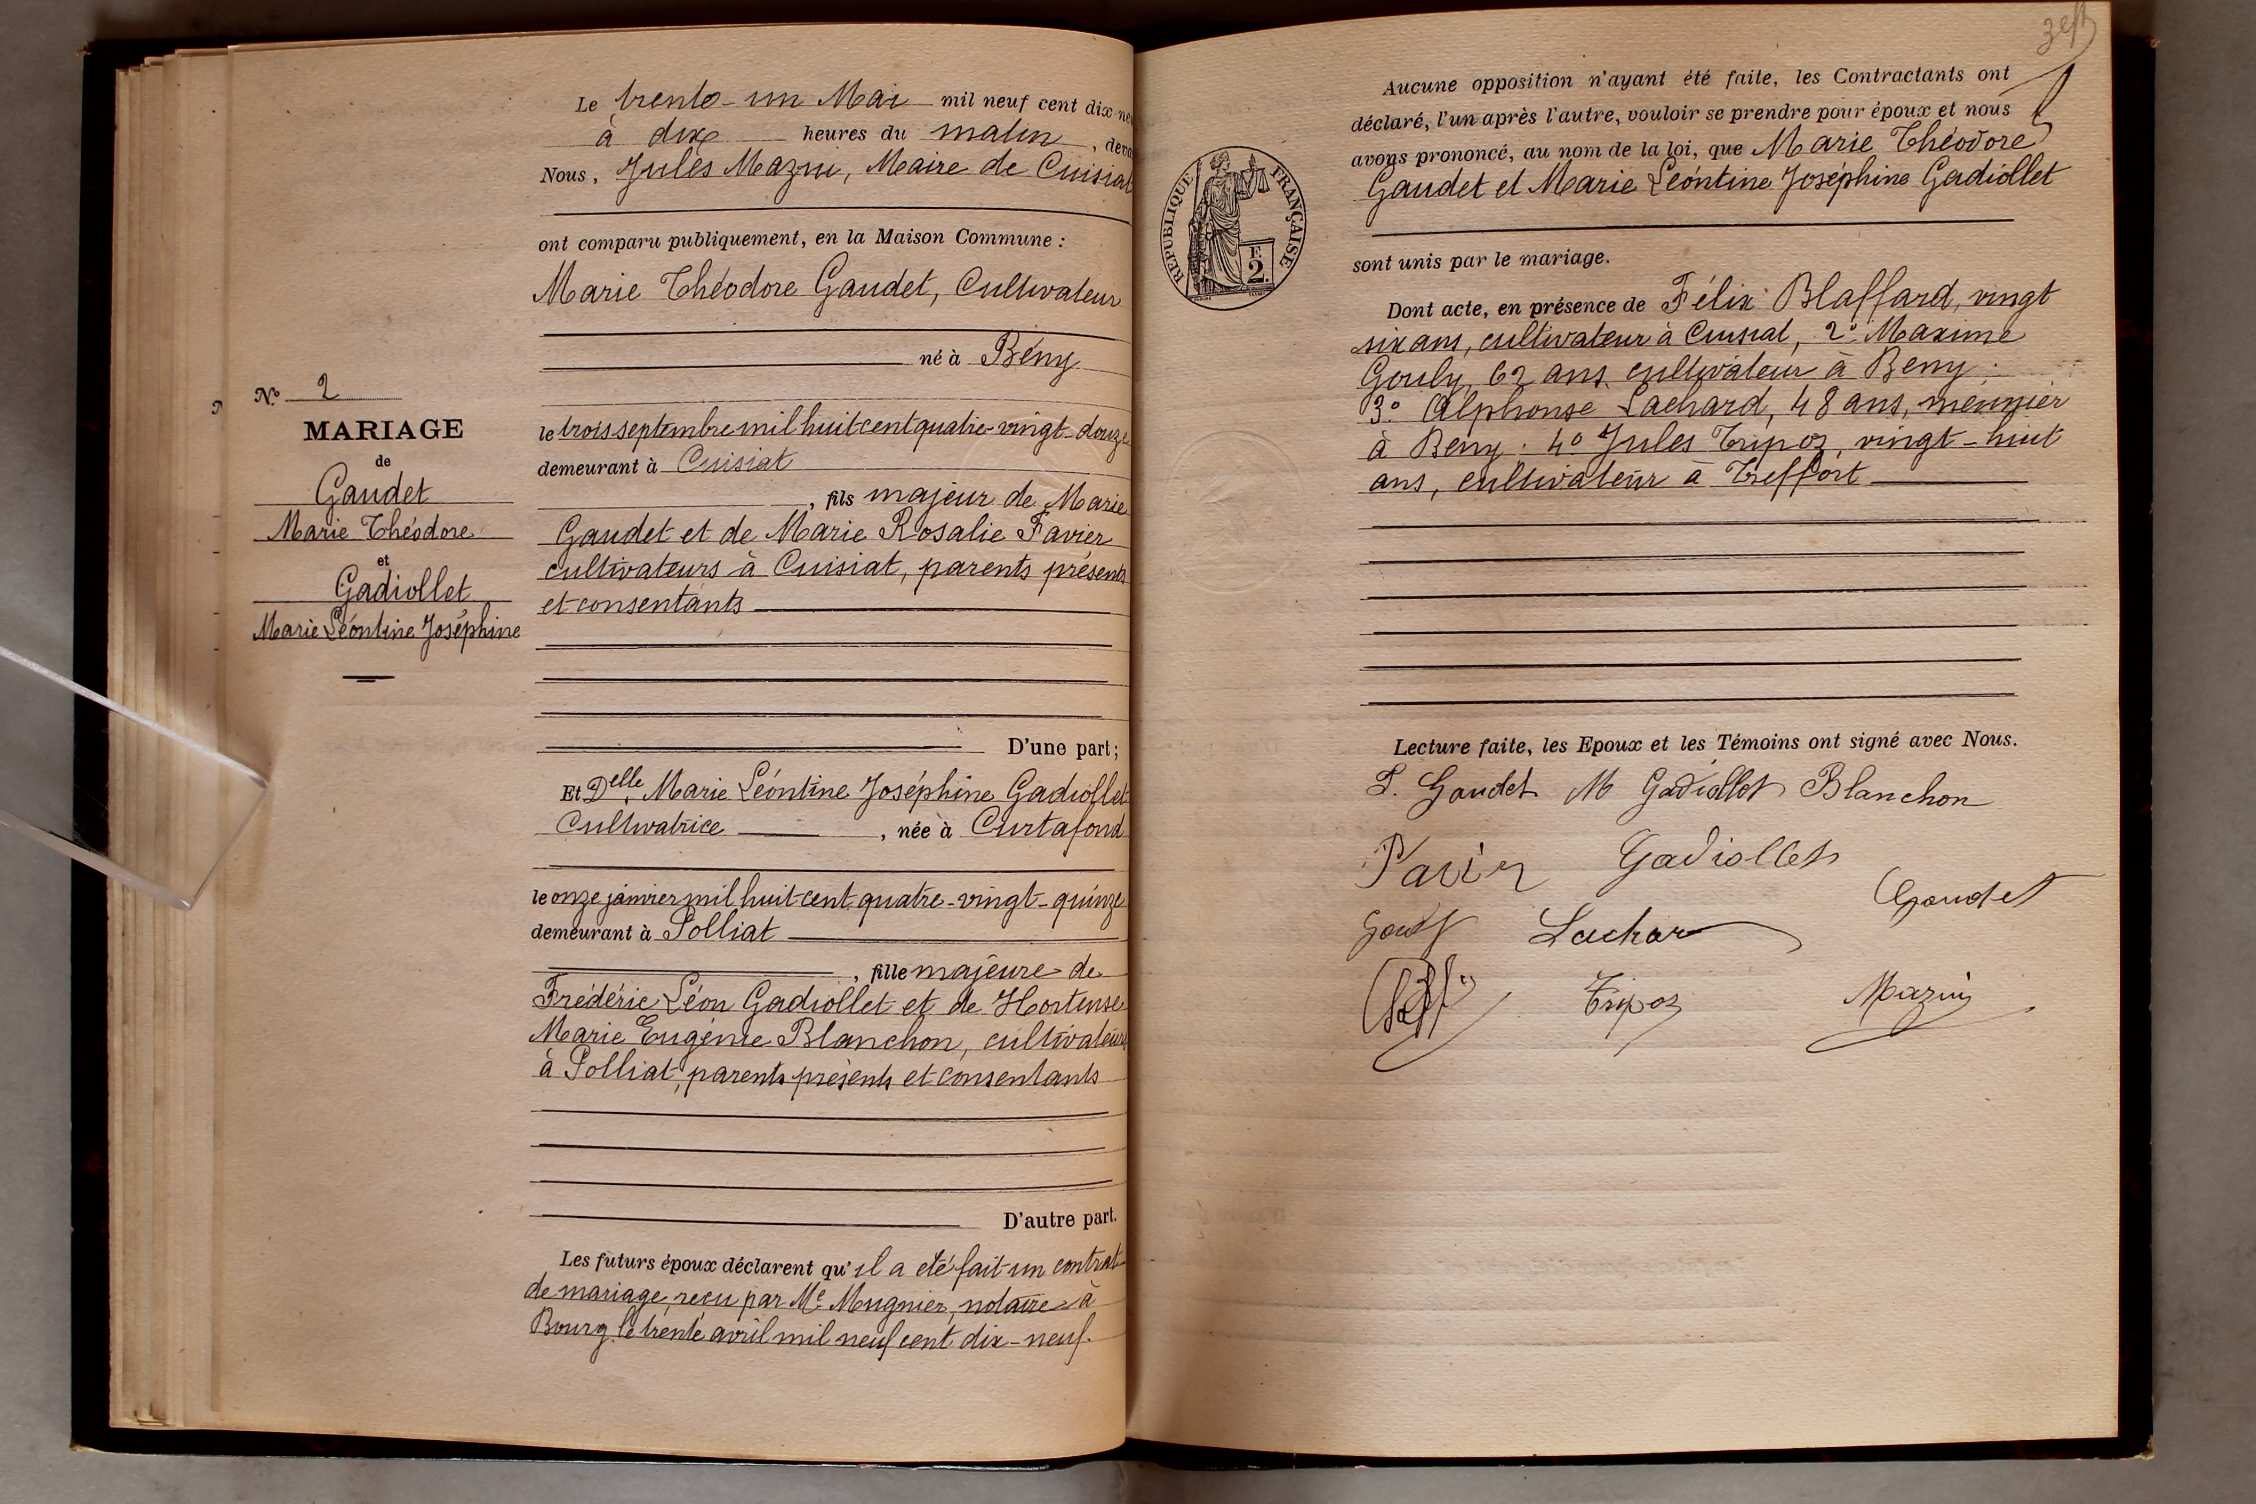 Le trente-un Mai mil neuf cent dix-neu
à dix heures du matin, deva
Nous, Jules Mazui, Maire de Cuisiat
ont comparu publiquement, en la Maison Commune :
Marie Théodore Gaudet, Cultivateur
né à Bény
le trois septembre mil huit cent quatre-vingt-douze
demeurant à Cuisiat
, fils majeur de Marie
Gaudet et de Marie Rosalie Favier
cultivateurs à Cuisiat, parents présents
et consentants
D'une part ;
Et Delle Marie Léontine Joséphine Gadiollet
Cultivatrice, née à Curtafond
le onze janvier mil huit cent quatre-vingt-quinze
demeurant à Polliat
, fille majeure de
Frédéric Léon Gadiollet et de Hortense
Marie Eugénie Blanchon, cultivateurs
à Polliat, parents présents et consentants
D'autre part.
Les futurs époux déclarent qu'il a été fait un contrat
de mariage, reçu par Me Mugnier, notaire à
Bourg le trente avril mil neuf cent dix-neuf.
No 2
MARIAGE
de
Gaudet
Marie Théodore
et
Gadiollet
Marie Léontine Joséphine
RÉPUBLIQUE FRANÇAISE
2F.
Aucune opposition n'ayant été faite, les Contractants ont
déclaré, l'un après l'autre, vouloir se prendre pour époux et nous
avons prononcé, au nom de la loi, que Marie Théodore
Gaudet et Marie Léontine Joséphine Gadiollet
sont unis par le mariage.
Dont acte, en présence de Félix Blaffard, vingt
six ans, cultivateur à Cuisiat, 2° Maxime
Gouly, 62 ans, cultivateur à Beny.
3° Alphonse Lachard, 48 ans, meunier
à Beny. 4° Jules Tripoz, vingt-huit
ans, cultivateur à Treffort
Lecture faite, les Epoux et les Témoins ont signé avec Nous.
T. Gaudet M Gadiollet Blanchon
Favier Gadiollet
Gaudet
Gouly Lachar
Tripoz Mazui